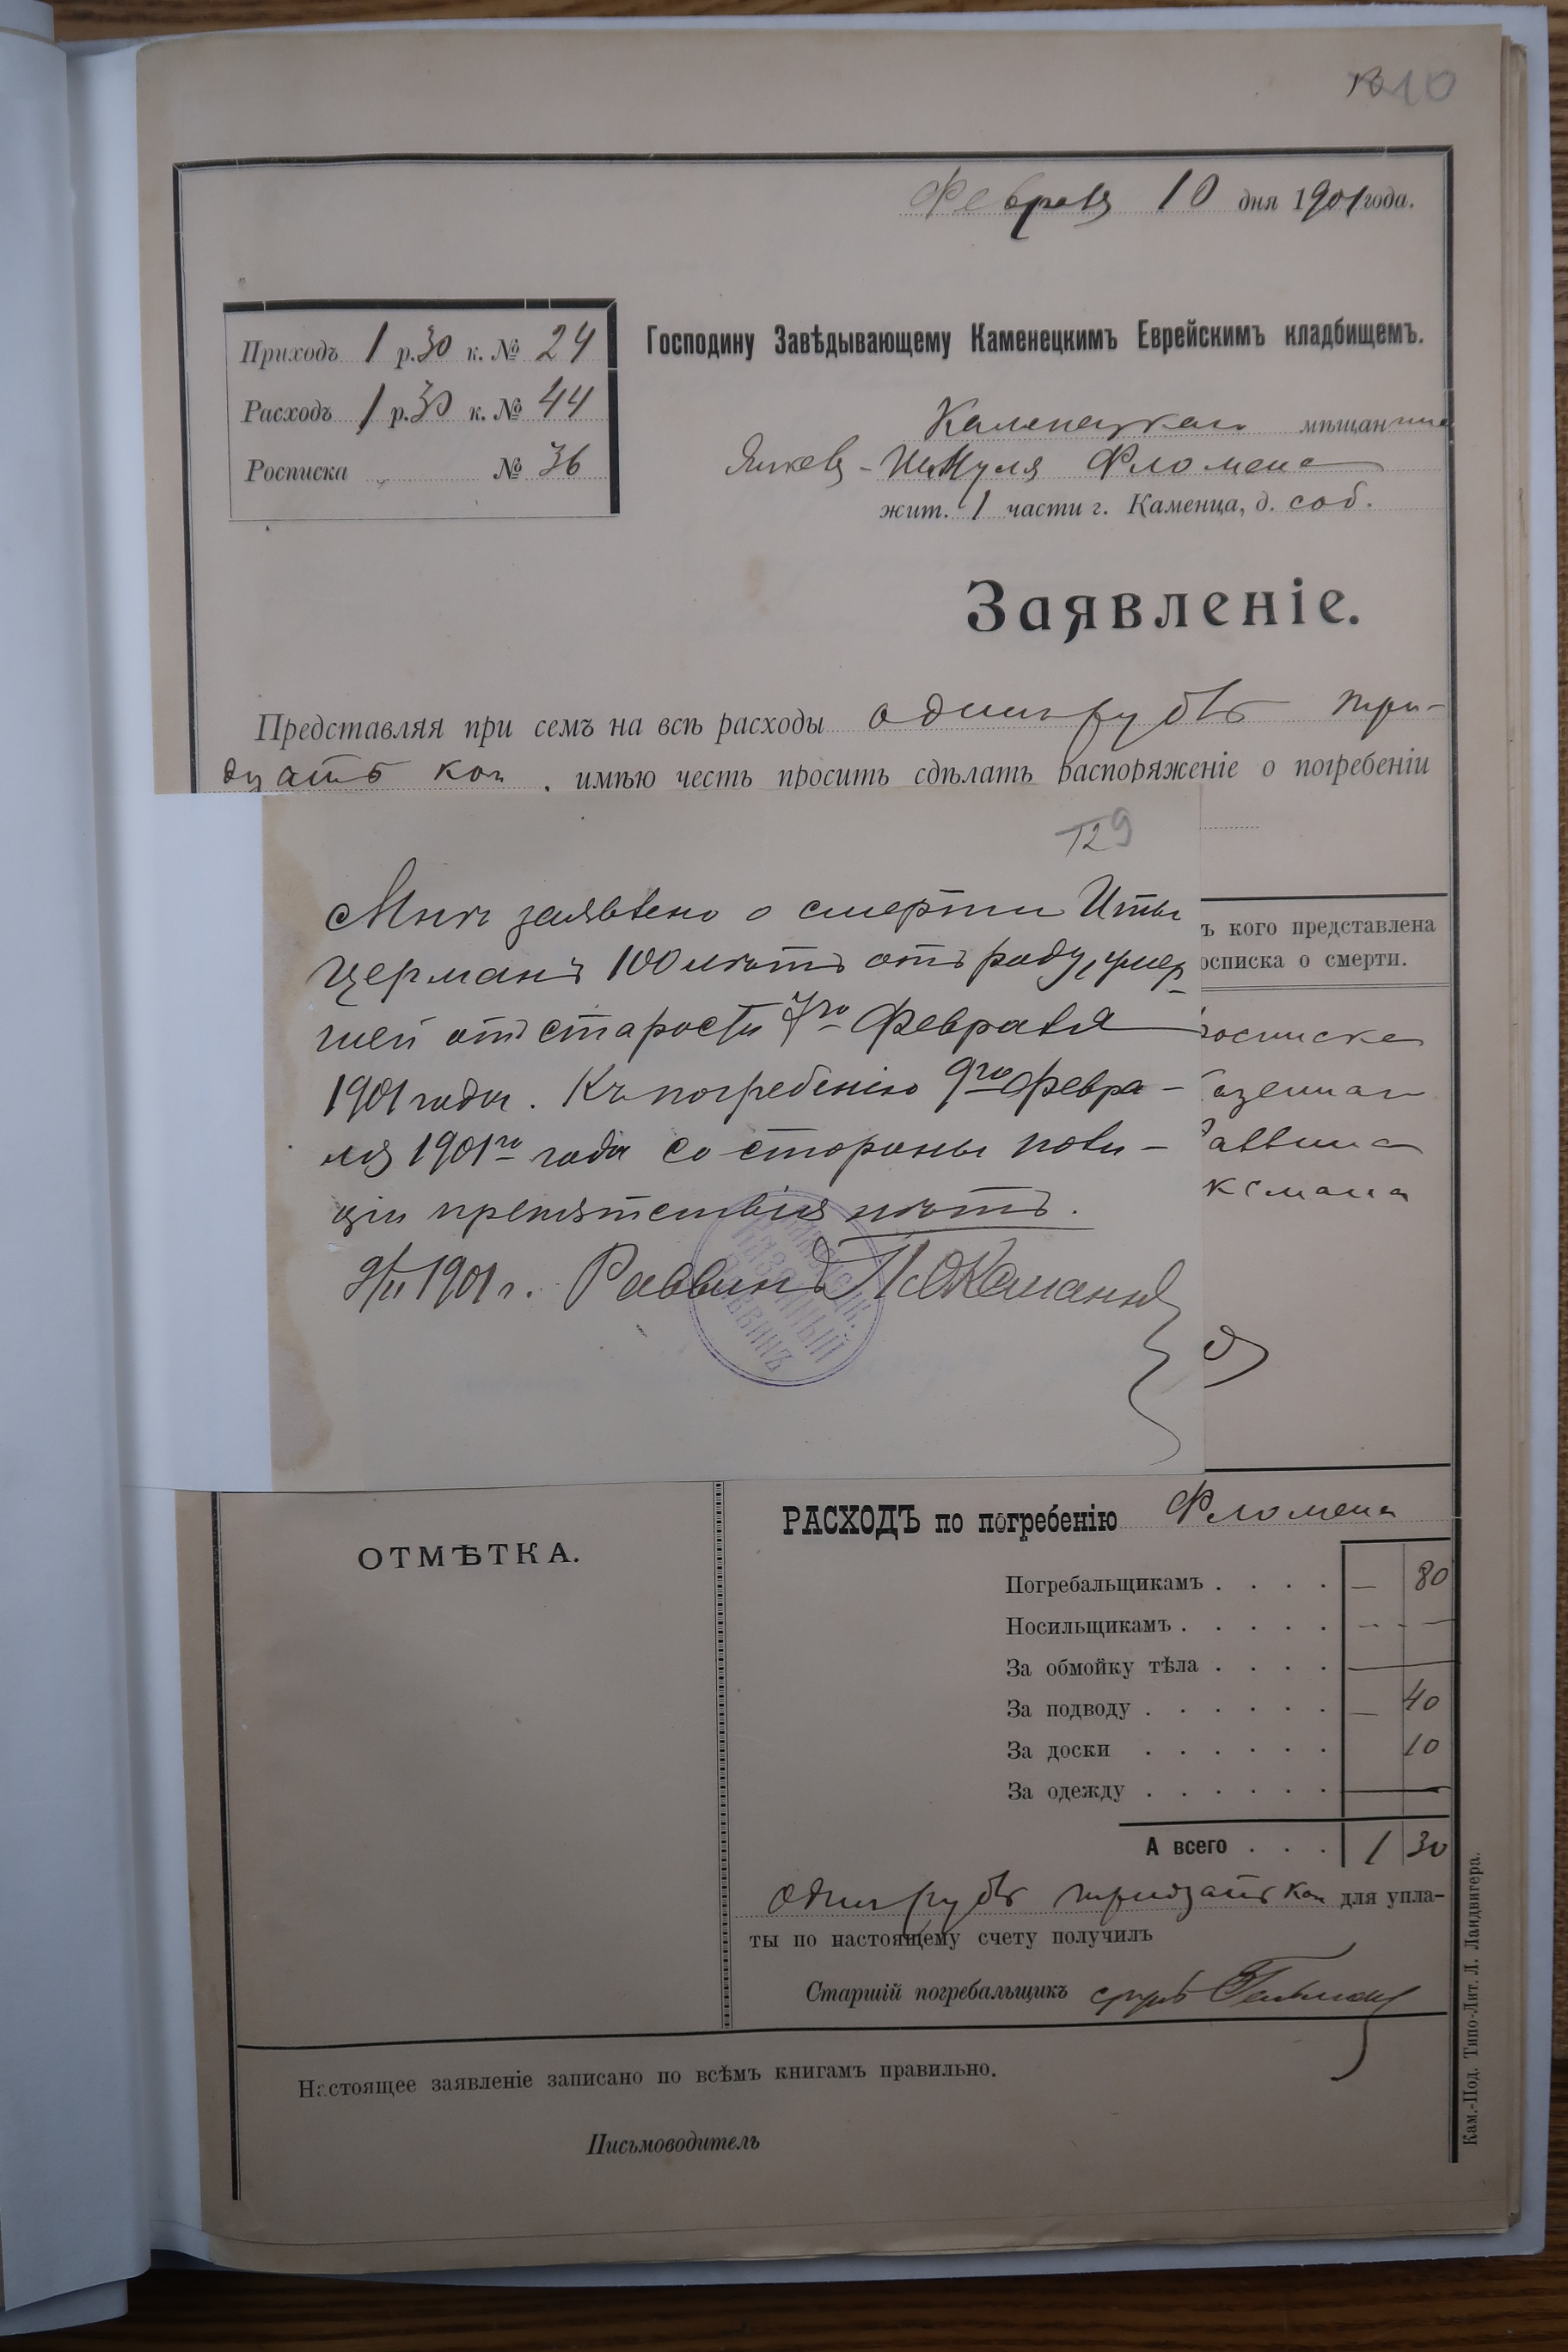 10
Февраля 10 дня 1901 года.
Приходъ 1 р. 30 к. № 24
Расходъ 1 р. 30 к. № 44
Росписка № 36
Господину Завѣдывающему Каменецкимъ Еврейскимъ кладбищемъ.
Каменецкаго мѣщанина
Янкеля - Шмуля Фломена
жит. 1 части г. Каменца, д. соб.
Заявленіе.
Представляя при семъ на всѣ расходы одинъ рубль три-
дцать коп. имѣю честь просить сдѣлать распоряженіе о погребеніи
129
Мнѣ заявлено о смерти Иты
Церманъ 100 лѣтъ отъ роду, умер-
шей отъ старости 7го Февраля
1901 года. Къ погребенію 9го Февра-
ля 1901го года со стороны поли-
ціи препятствія нѣтъ.
9/II 1901 г. Раввинъ
КАЗЕННЫЙ
РАВВИНЪ
ъ кого представлена
осписка о смерти.
росписка
азеннаг
аввина
ксмана
ОТМѢТКА.
РАСХОДЪ по погребенію Фломена
Погребальщикамъ . . . . — 80
Носильщикамъ . . . . . — —
За обмойку тѣла . . . . —
За подводу . . . . . . — 40
За доски . . . . . . 10
За одежду . . . . . . —
А всего . . . 1 30
Одинъ рубль тридцать коп для упла-
ты по настоящему счету получилъ
Старшій погребальщикъ
Настоящее заявленіе записано по всѣмъ книгамъ правильно.
Письмоводитель
Кам.-Под. Типо-Лит. Л. Ландвигера.